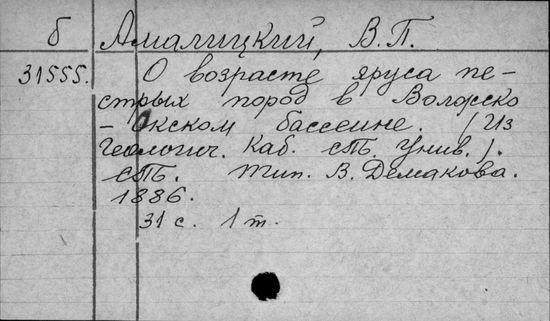 б Амалицкий, В.П.
31555. О возрасте яруса пе-
стрых пород в Волжско
-Окском бассейне. (Из
Геологич. Каб. СПБ. Унив.).
СПБ. Тип. В. Демакова.
1886.
31 с. 1 т.